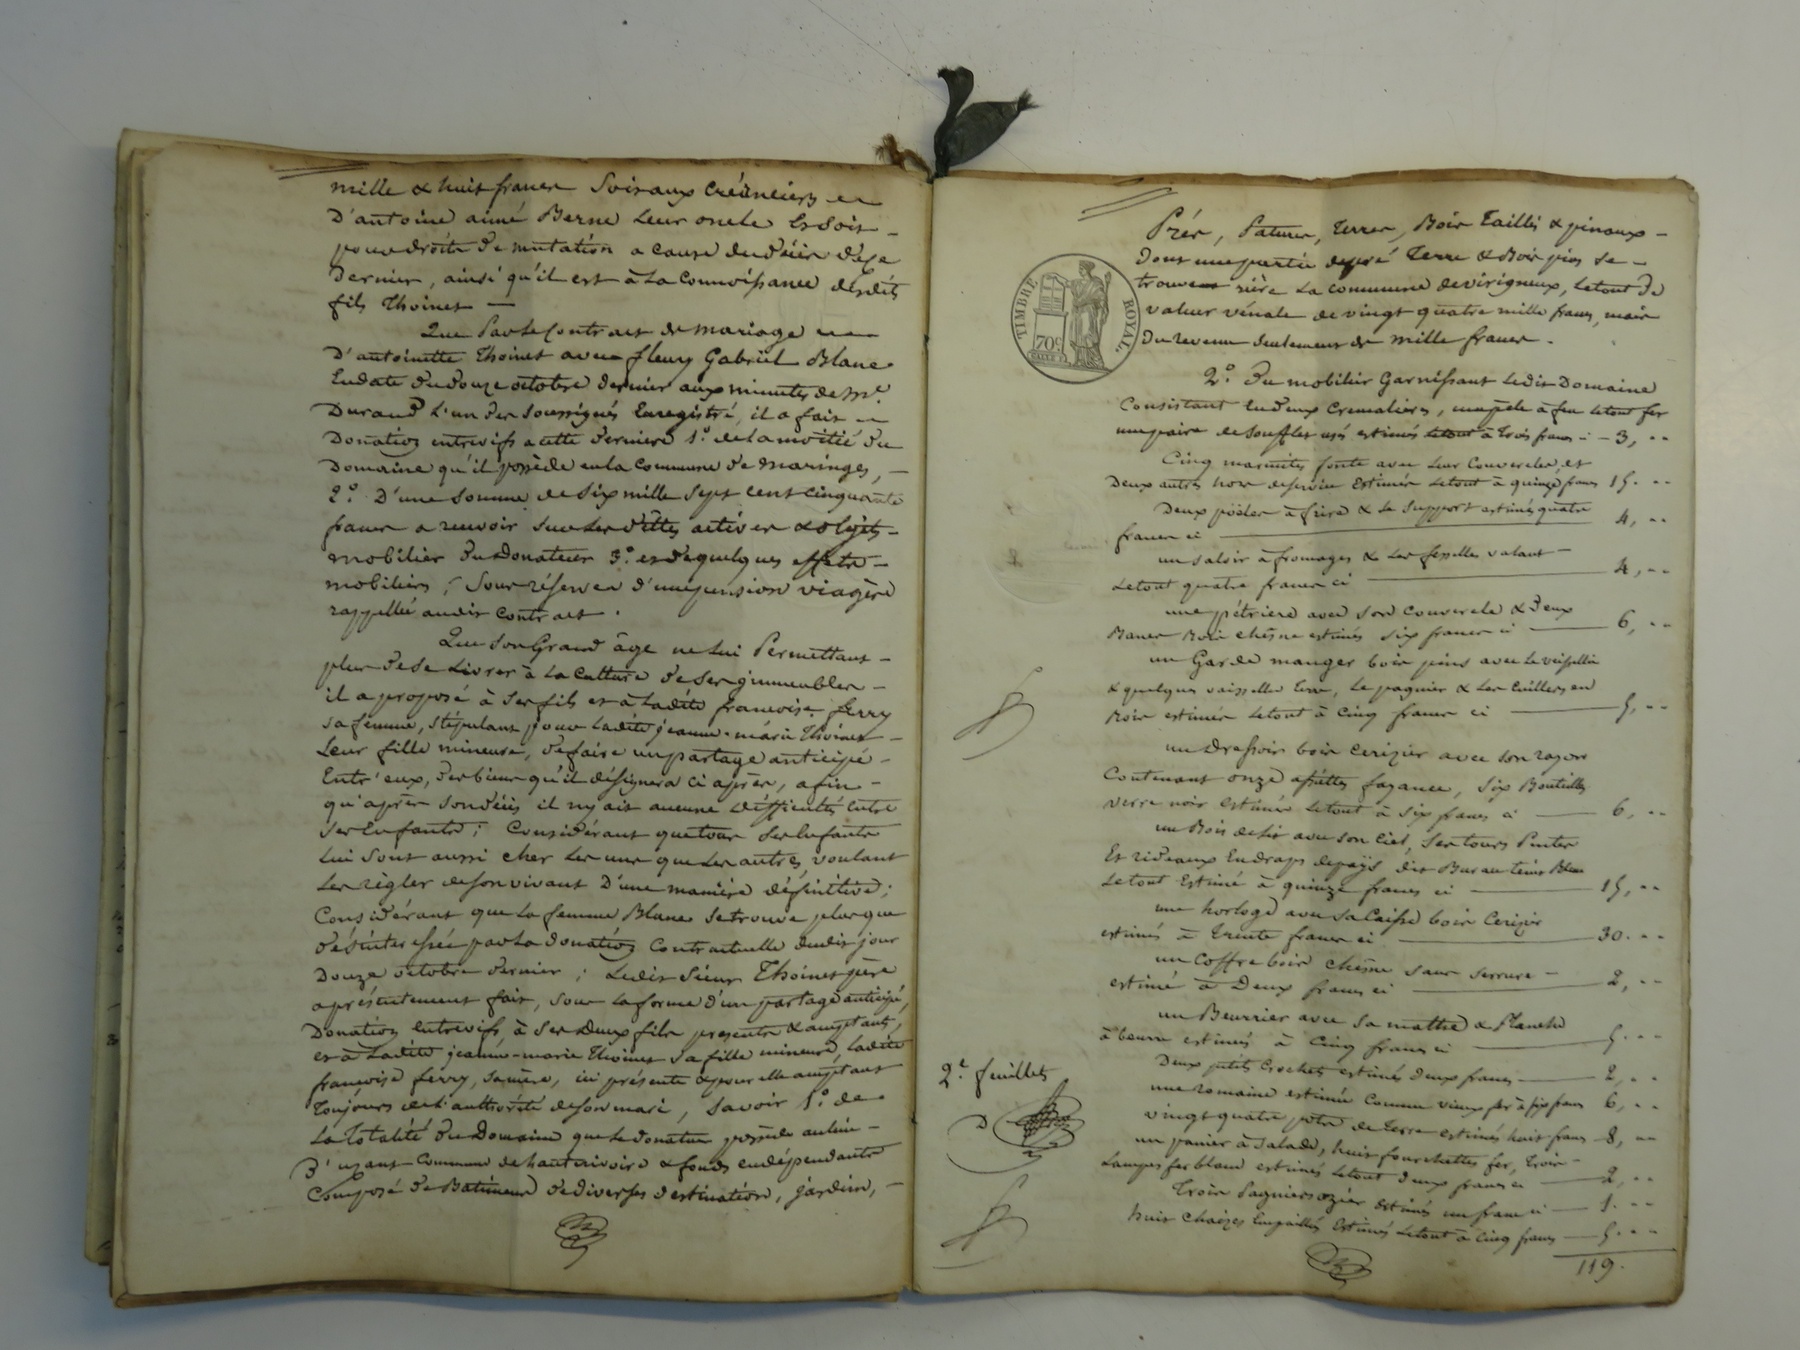 mille & huit francs Soit aux Créanciers
D'antoine aimé Berne Leur oncle Et Soit
pour droits de mutation a cause du déces de ce
Dernier, ainsi qu'il est à la Connoissance desdits
fils Thoinet
Que Par le Contract de mariage
D'antoinette Thoinet avec fleury Gabriel Blanc
En date du douze octobre dernier aux minutes de Me.
Durand L'un des Soussignés Enregistré, il a fait
Donation entrevifs a cette derniere 1.° de la moitié du
Domaine qu'il possède en la Commune de maringes,
2.° D'une Somme de Six mille Sept cent cinquante
francs a recevoir sur les dettes actives & objets
mobilier du Donateur 3.° et de quelques effets
mobiliers, Sous réserves d'une pension viagère
rappellée audit Contract.
Que Son Grand âge ne lui Permettant
plus de se Livrer à la Culture de ses immeubles
il a proposé à Ses fils et à Ladite francoise ferry
sa femme, stipulant pour Ladite jeanne-marie Thoinet
Leur fille mineure, de faire un partage anticipé
Entr'eux, des biens qu'il désignera ci après, afin
qu'après son déces il n'y ait aucune difficultés Entre
Ses Enfants; Considérant que tous Ses Enfants
Lui Sont aussi cher Les uns que Les autres voulant
Les règler de son vivant D'une manière définitive;
Considérant que La femme Blanc se trouve plus que
désintéressée par La donation Contractuelle dudit jour
Douze octobre dernier; Ledit Sieur Thoinet père
a présentement fait, Sous La forme d'un partage anticipé,
Donation Entrevifs, à Ses Deux fils présents & acceptants,
et à Ladite jeanne-marie Thoinet Sa fille mineure, Ladite
francoise ferry, Sa mère, ici présente & pour elle acceptant
Toujours de L'authorité de Son mari, Savoir 1.° de
La Totalité du Domaine que Le donateur possède au lieu
D' commune de hauterivoire & fonds en dépendants
Composé de Batiments de diverses destination, jardin,
Prés, Patures, Terres, Bois Taillis & pinaux
Dont une partie de pré Terre & Bois pins se
trouvent rière La commune de virigneux, Letout de
valeur vénale de vingt quatre mille francs, mais
Du revenu Seulement de mille francs.
TIMBRE ROYAL
70c
2.° Du mobilier Garnissant Ledit Domaine
Consistant En deux Cremalieres, une pèle à feu Letout fer
une paire de Soufflet usé estimés Letout à Trois francs 3, "
Cinq marmites fonte avec Leur Couvercles, et
Deux autres hors de service Estimés Letout à quinze francs 15. "
Deux poëles à frire & Le Support estimés quatre
francs ci 4, "
un saloir à fromages & Les fesselles valant
Letout quatre francs ci 4, "
une pétriere avec Son Couvercle & Deux
Bancs Bois chêsne estimés Six francs ci 6, "
un Garde manger bois pins avec Le
& quelques vaisselle Terre, Le pagnier & Les Cuillers en
Bois estimés Letout à Cinq francs ci 5, "
un dressoir bois Cerizier avec son
Contenant onze assiettes fayance, Six Bouteilles
verre noir Estimés Letout à Six francs ci 6, "
un Bois de lit avec Son Ciel, Ses tours
Et rideaux En draps de païs dit Bureau Teint Bleu
Letout Estimé à quinze francs ci 15, "
une horloge avec Sa Caisse bois Cerizier
estimés à Trente francs ci 30. "
un Coffre bois Chêsne Sans Serrure
estimé à Deux francs ci 2, "
un Beurrier avec Sa & Planche
à beurre estimés à Cinq francs ci 5. "
Deux petits Crochets estimés deux francs 2, "
une Romaine estimée Comme vieux fer à Six francs 6, "
vingt quatre pots de terre estimés huit francs 8, "
un panier à Salade, huit fourchettes fer, Trois
Lampes fer blanc estimés Letout deux francs ci 2, "
Trois Pagniers ozier estimés un franc ci 1. "
huit Chaises Empaillés Estimés Letout à Cinq francs 5. "
119.
2.e feuillet